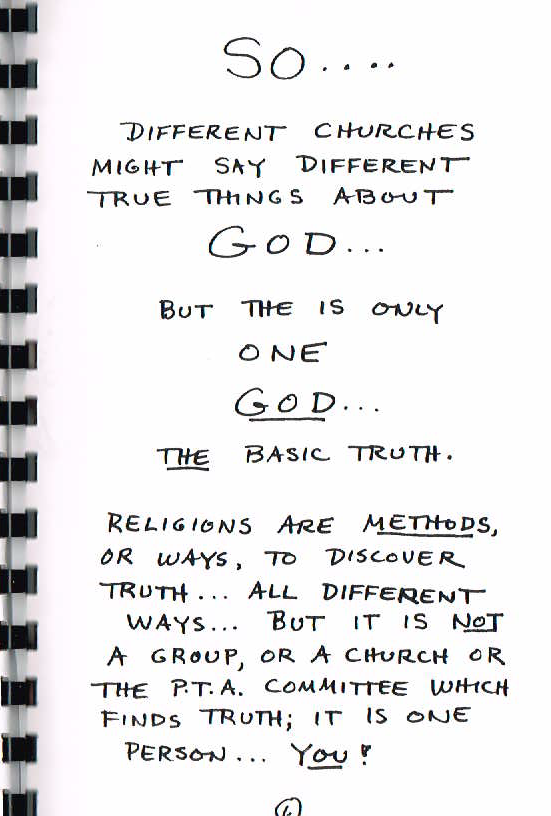 SO....
DIFFERENT CHURCHES
MIGHT SAY DIFFERENT
TRUE THINGS ABOUT
GOD...
BUT THE IS ONLY
ONE
GOD...
THE BASIC TRUTH.
RELIGIONS ARE METHODS,
OR WAYS, TO DISCOVER
TRUTH... ALL DIFFERENT
WAYS... BUT IT IS NOT
A GROUP, OR A CHURCH OR
THE P.T.A. COMMITTEE WHICH
FINDS TRUTH; IT IS ONE
PERSON... YOU!